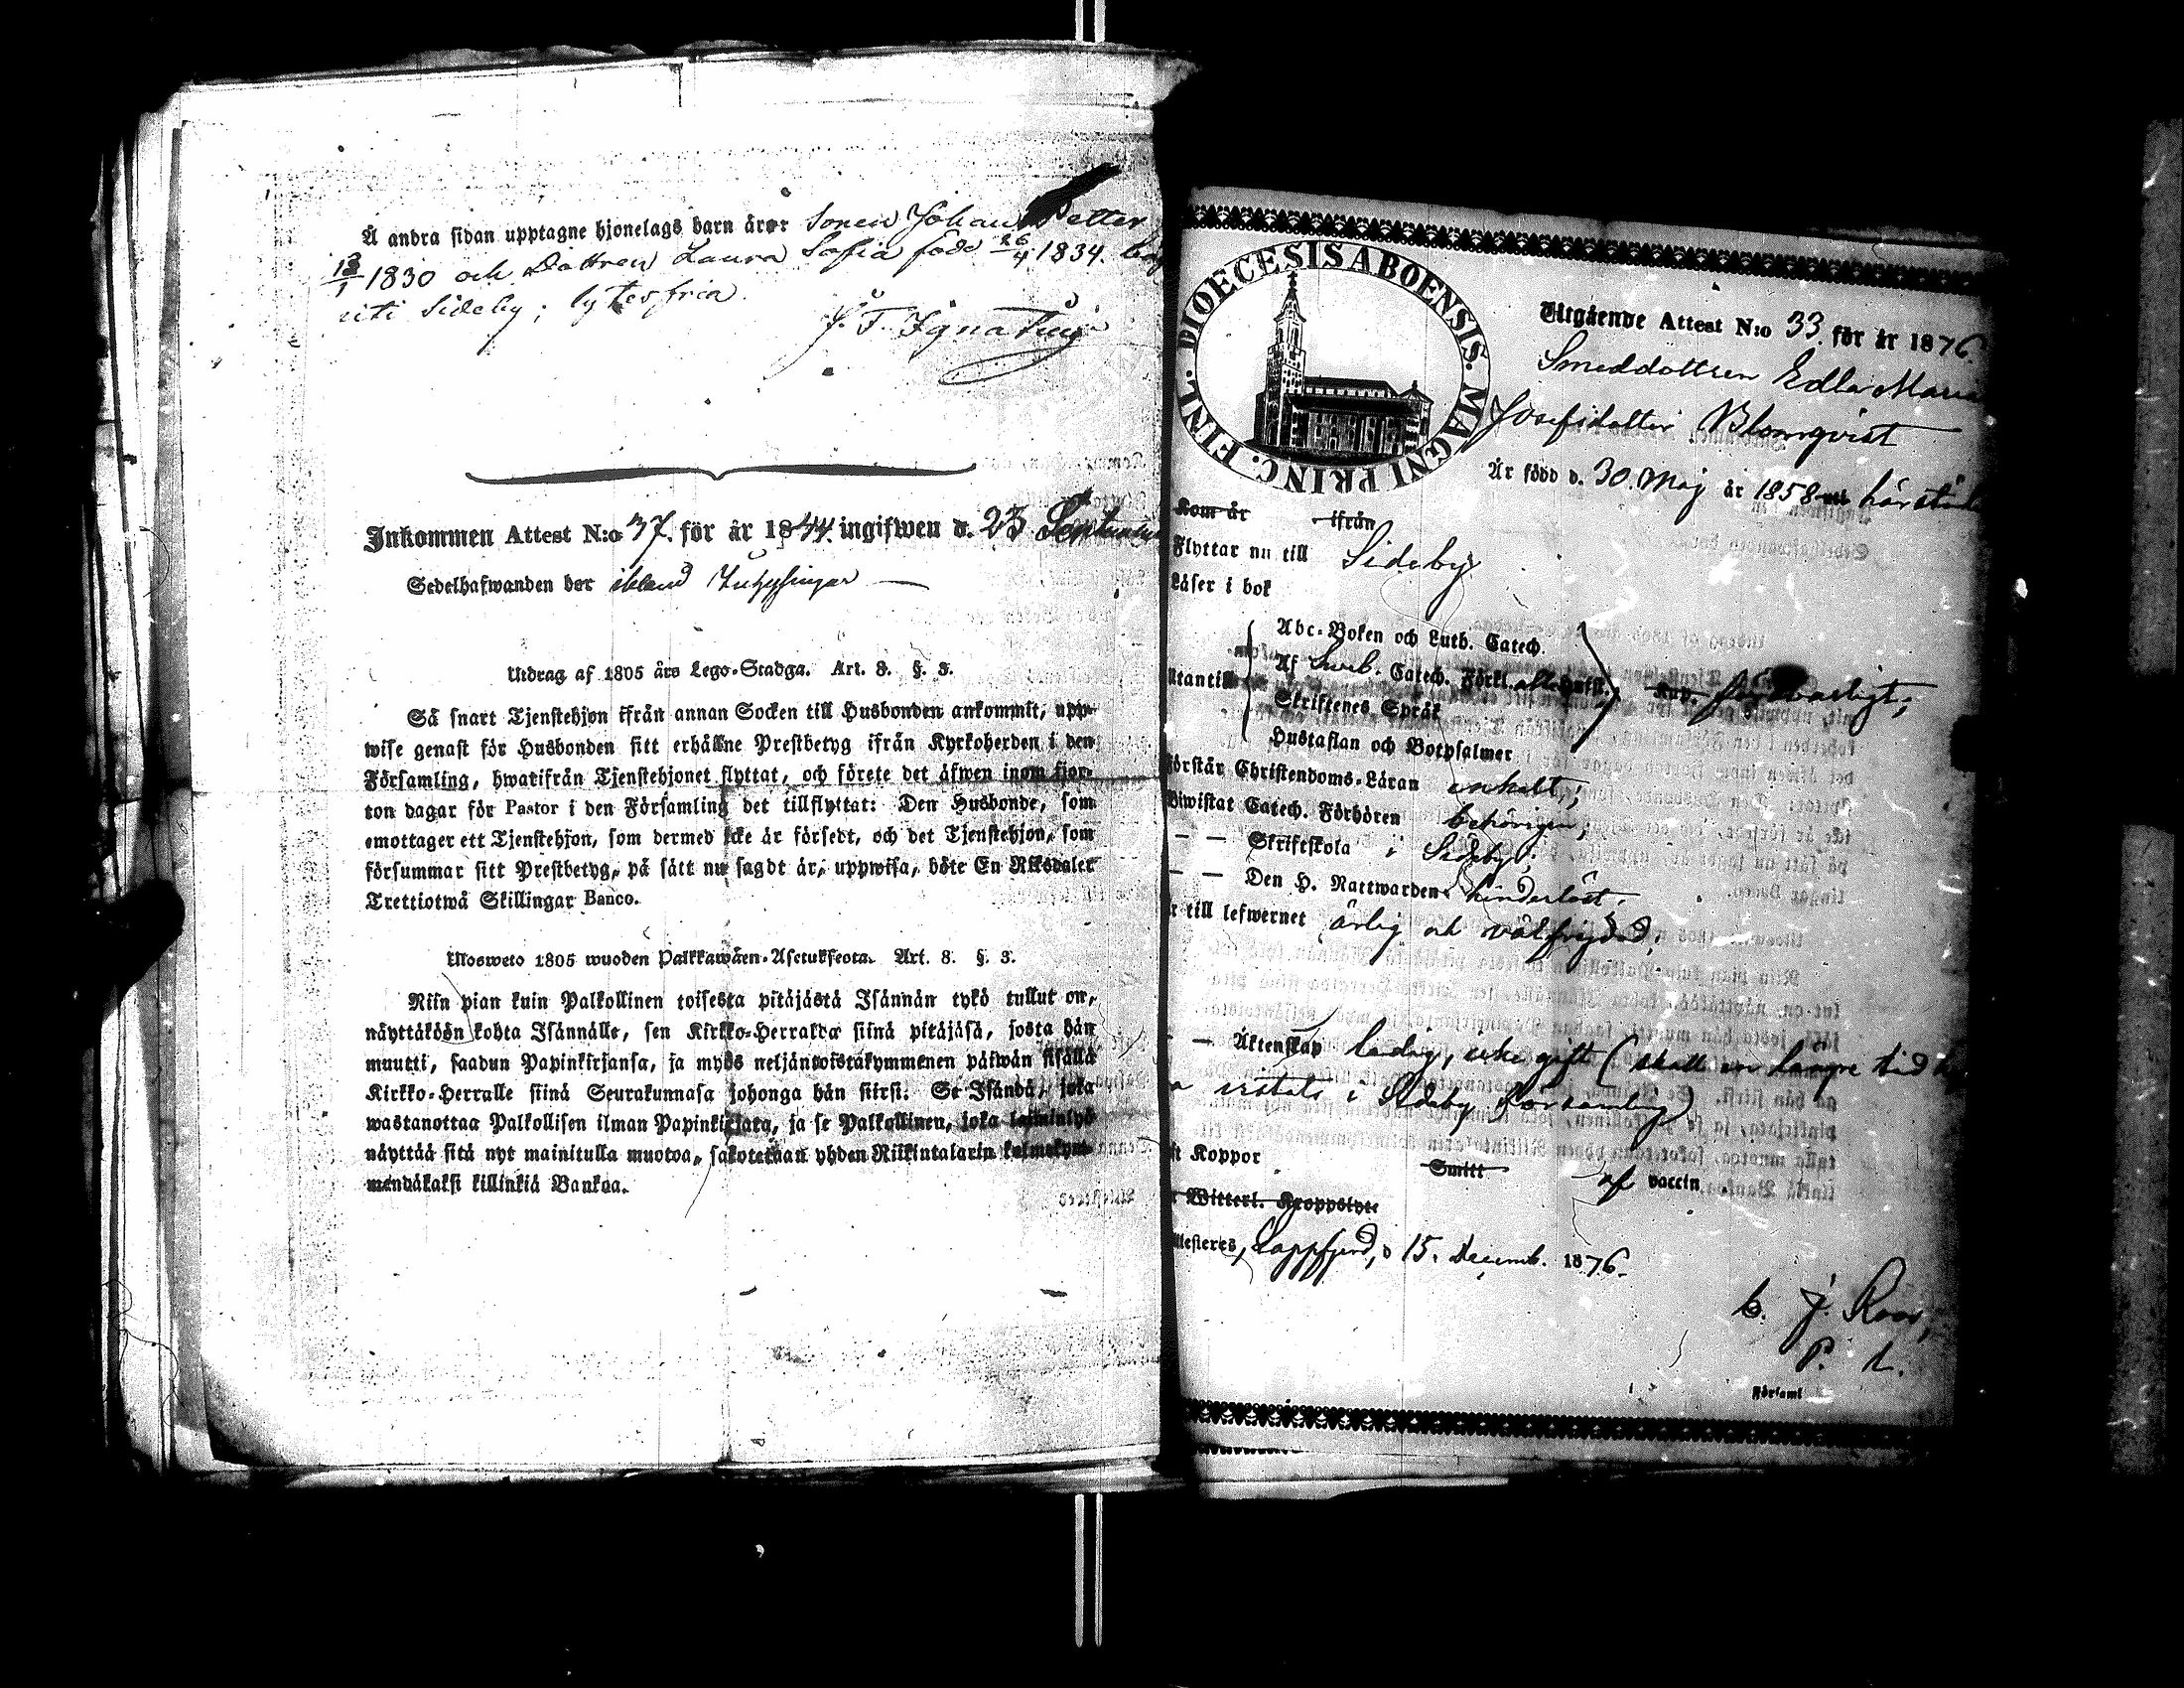 Å andra sidan upptagne hjonelags barn äro: Sonen Johan Petter
13/1 1830 och Dottren Laura Sofia född 26/4 1834.
uti Sideby; lytesfria.
J. F. Ignatius
Inkommen Attest N:o 37. för år 1844. ingifwen d. 23 September
Sedelhafwanden bor ibland Inhysingar
Utdrag af 1805 års Lego-Stadga. Art. 8. §. 3.
Så snart Tjenstehjon ifrån annan Socken till Husbonden ankommit, upp-
wise genast för Husbonden sitt erhållne Prestbetyg ifrån Kyrkoherden i den
Församling, hwarifrån Tjenstehjonet flyttat, och förete det äfwen inom fjor-
ton dagar för Pastor i den Församling det tillflyttat: Den Husbonde, som
emottager ett Tjenstehjon, som dermed icke är försedt, och det Tjenstehjon, som
försummar sitt Prestbetyg, på sätt nu sagdt är, uppwisa, böte En Riksdaler
Trettiotwå Skillingar Banco.
Ulosweto 1805 wuoden Palkkawäen-Asetuksesta. Art. 8. §. 3.
Niin pian kuin Palkollinen toisesta pitäjästä Isännän tykö tullut on,
näyttäköön kohta Isännälle, sen Kirkko-Herralda siinä pitäjäsä, josta hän
muutti, saadun Papinkirjansa, ja myös neljäntoistakymmenen päiwän sisällä
Kirkko-Herralle siinä Seurakunnasa johonga hän siirsi: Se Isändä, joka
wastanottaa Palkollisen ilman Papinkirjata, ja se Palkollinen, joka laiminlyö
näyttää sitä nyt mainitulla muotoa, sakotetaan yhden Riikintalarin kolmekym-
mendäkaksi killinkiä Bankoa.
DIOECESIS ABOENSIS. MAGNI PRINC. FINL.
Utgående Attest N:o 33. för år 1876.
Smeddottren Edla Maria
Josefsdotter Blomqvist
Är född d. 30. Maj år 1858 härstädes
Kom år ifrån
Flyttar nu till Sideby
Läser i bok
Abc-Boken och Luth. Catech.
Utantill Af Sveb. Catech. Förkl.
Skriftenes Språk
Hustaflan och Botpsalmer
förswarligt;
Förstår Christendoms-Läran enkelt;
Biwistat Catech. Förhören behörigen;
— — Skriftskola i Sideby;
— — Den H. Nattwarden hinderlöst.
r till lefwernet ärlig och välfrejdad;
— Äktenskap ledig, icke gift (skall en längre tid
a vistats i Sideby Församling)
ft Koppor Smitt af vaccin
r Witterl. Kroppslyte
Attesteres, Lappfjerd, d 15. Decemb. 1876.
C. J. Roos,
P. L.
Församl